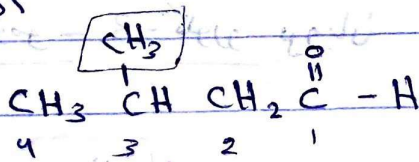 CH3
O
CH3 CH CH2 C - H
4 3 2 1